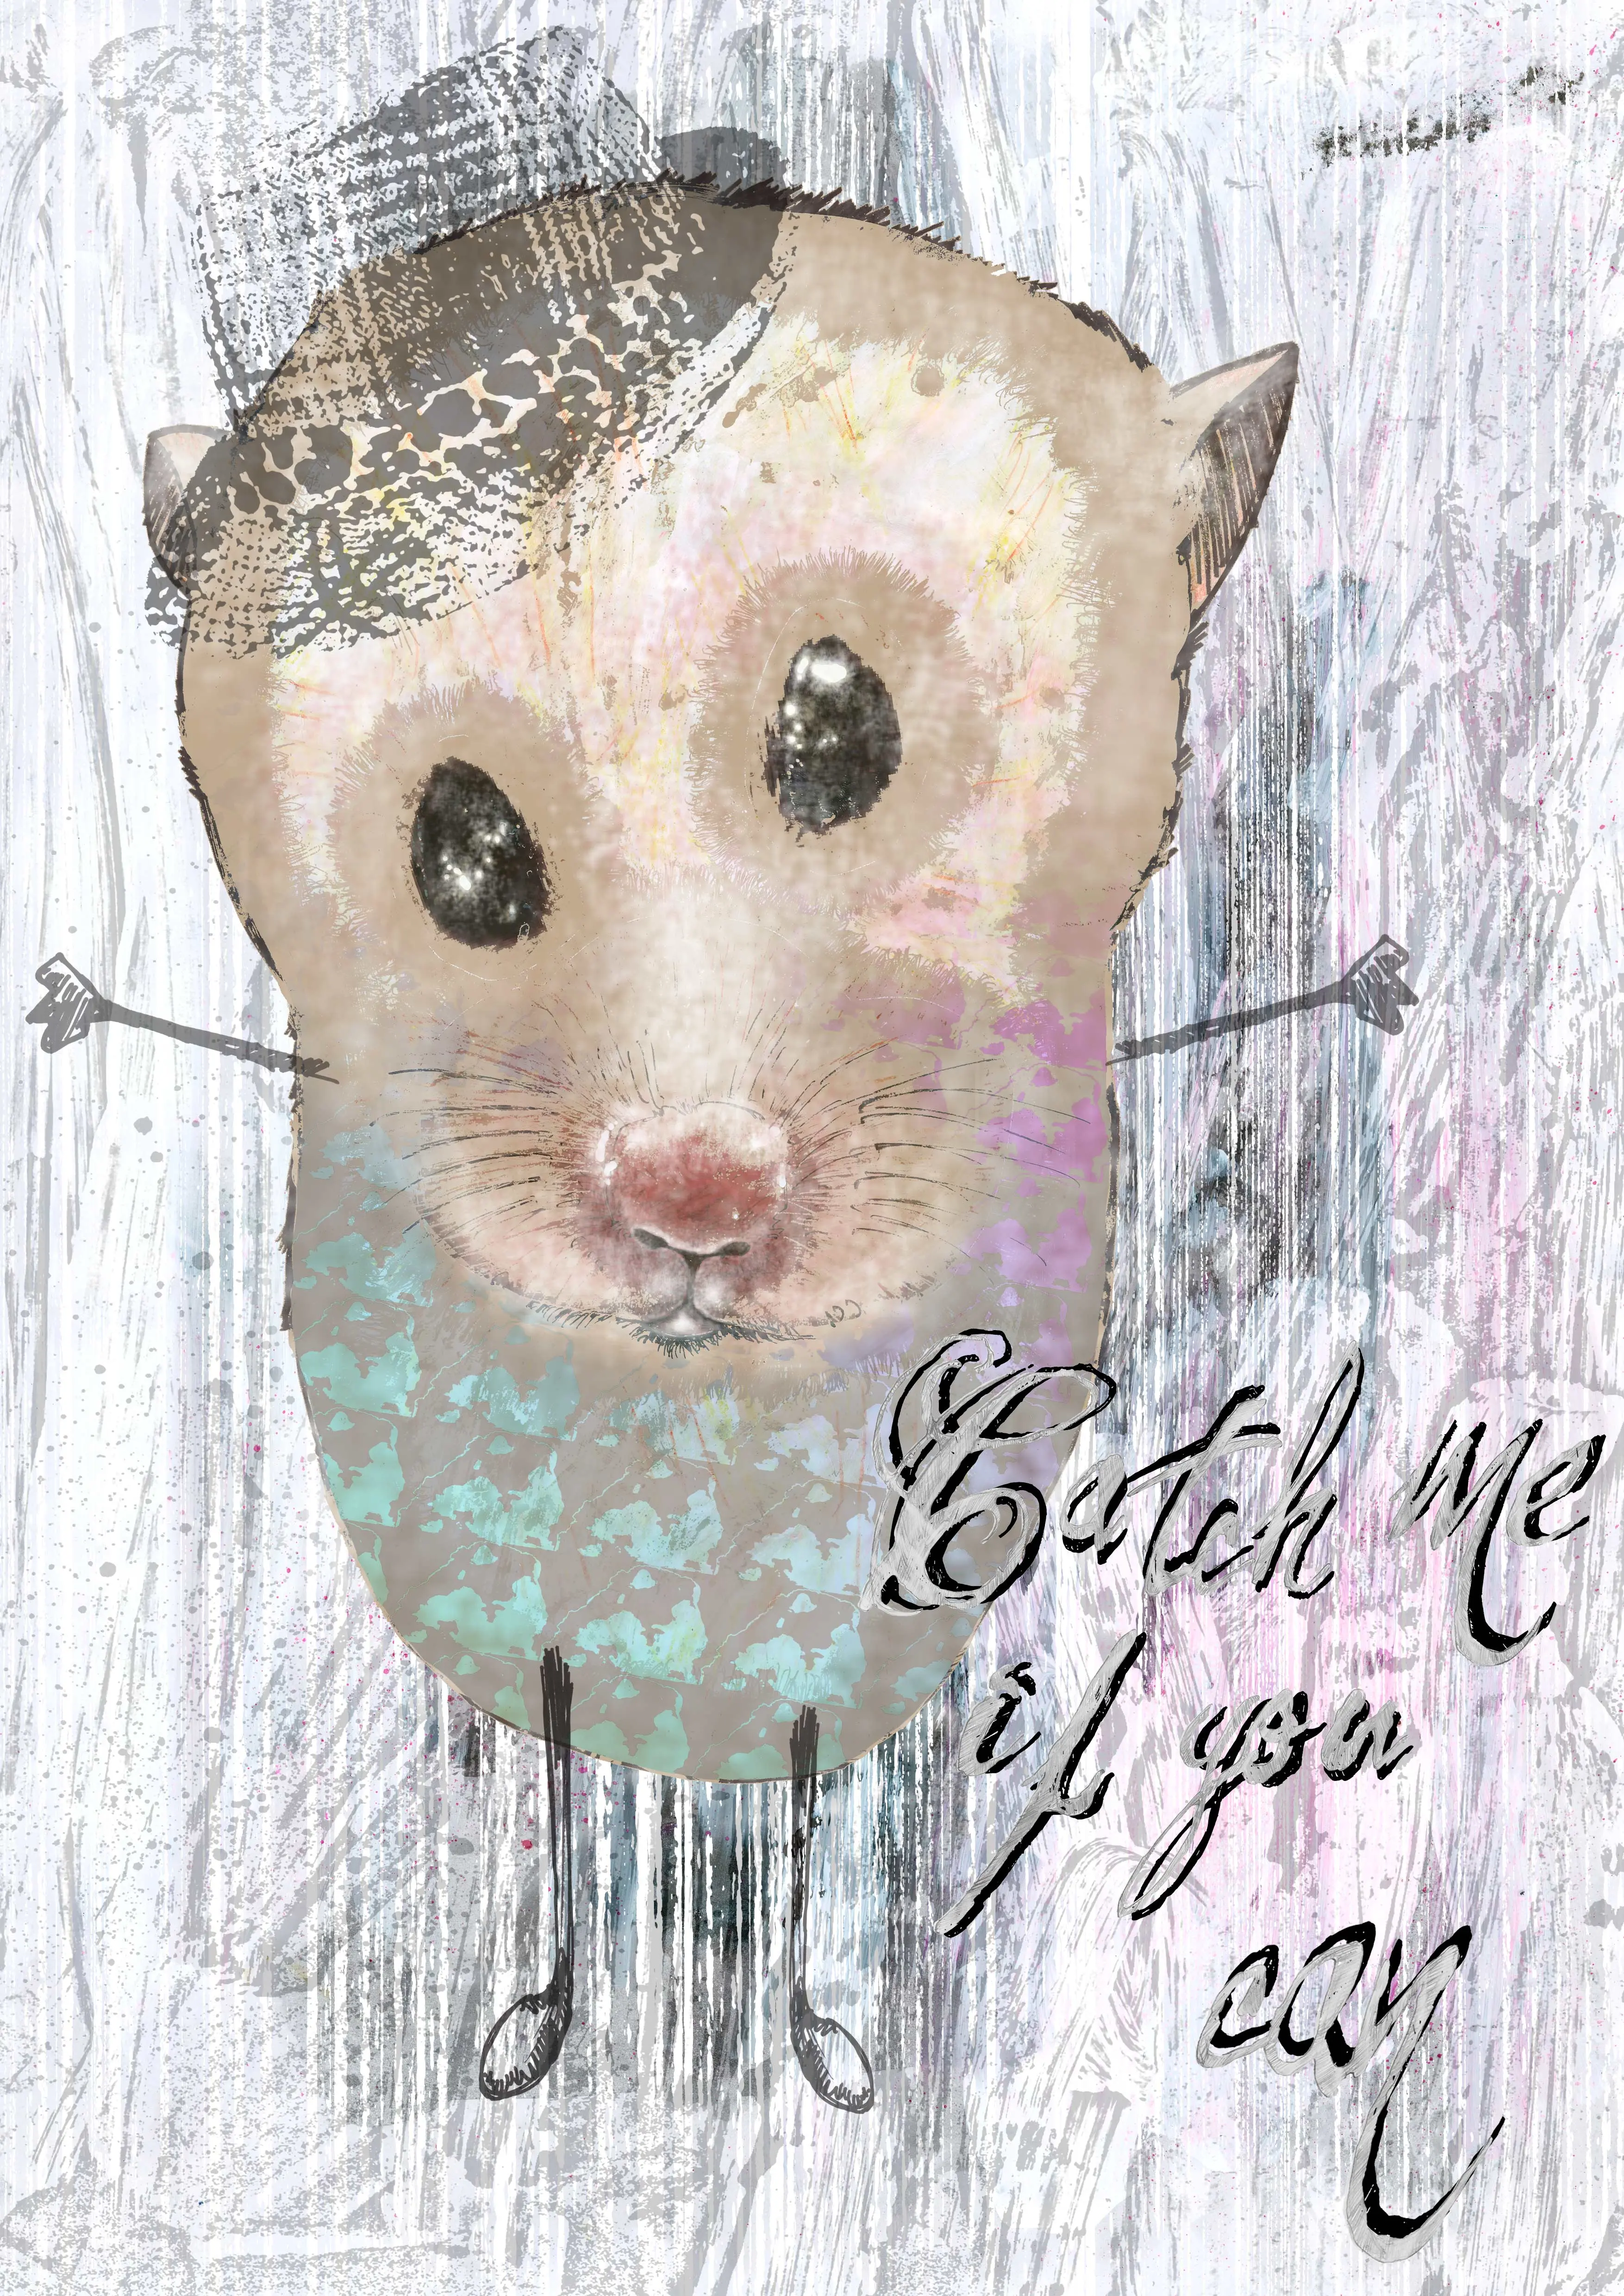 Catch me
if you
can